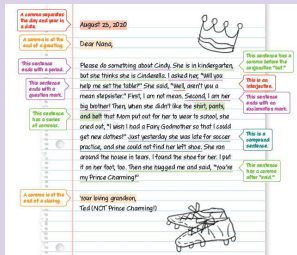 A comma separates
the day and year in
a date.
August 25, 2020
A comma is at the
end of a greeting.
Dear Nana,
This sentence
ends with a period.
This sentence
ends with a
question mark.
This sentence
has a series
of commas.
Please do something about Cindy. She is in kindergarten,
but she thinks she is Cinderella. I asked her, "Will you
help me set the table?" She said, "Well, aren't you a
mean stepsister." First, I am not mean. Second, I am her
big brother! Then, when she didn't like the shirt, pants,
and belt that Mom put out for her to wear to school, she
cried out, "I wish I had a Fairy Godmother so that I could
get new clothes!" Just yesterday she was late for soccer
practice, and she could not find her left shoe. She ran
around the house in tears. I found the shoe for her. I put
it on her foot, too. Then she hugged me and said, "You're
my Prince Charming!"
This sentence has a
comma before the
conjunction "but."
This is an
interjection.
This sentence
ends with an
exclamation mark.
This is a
compound
sentence.
This sentence
has a comma
after "said."
A comma is at the
end of a closing.
Your loving grandson,
Ted (NOT Prince Charming!)